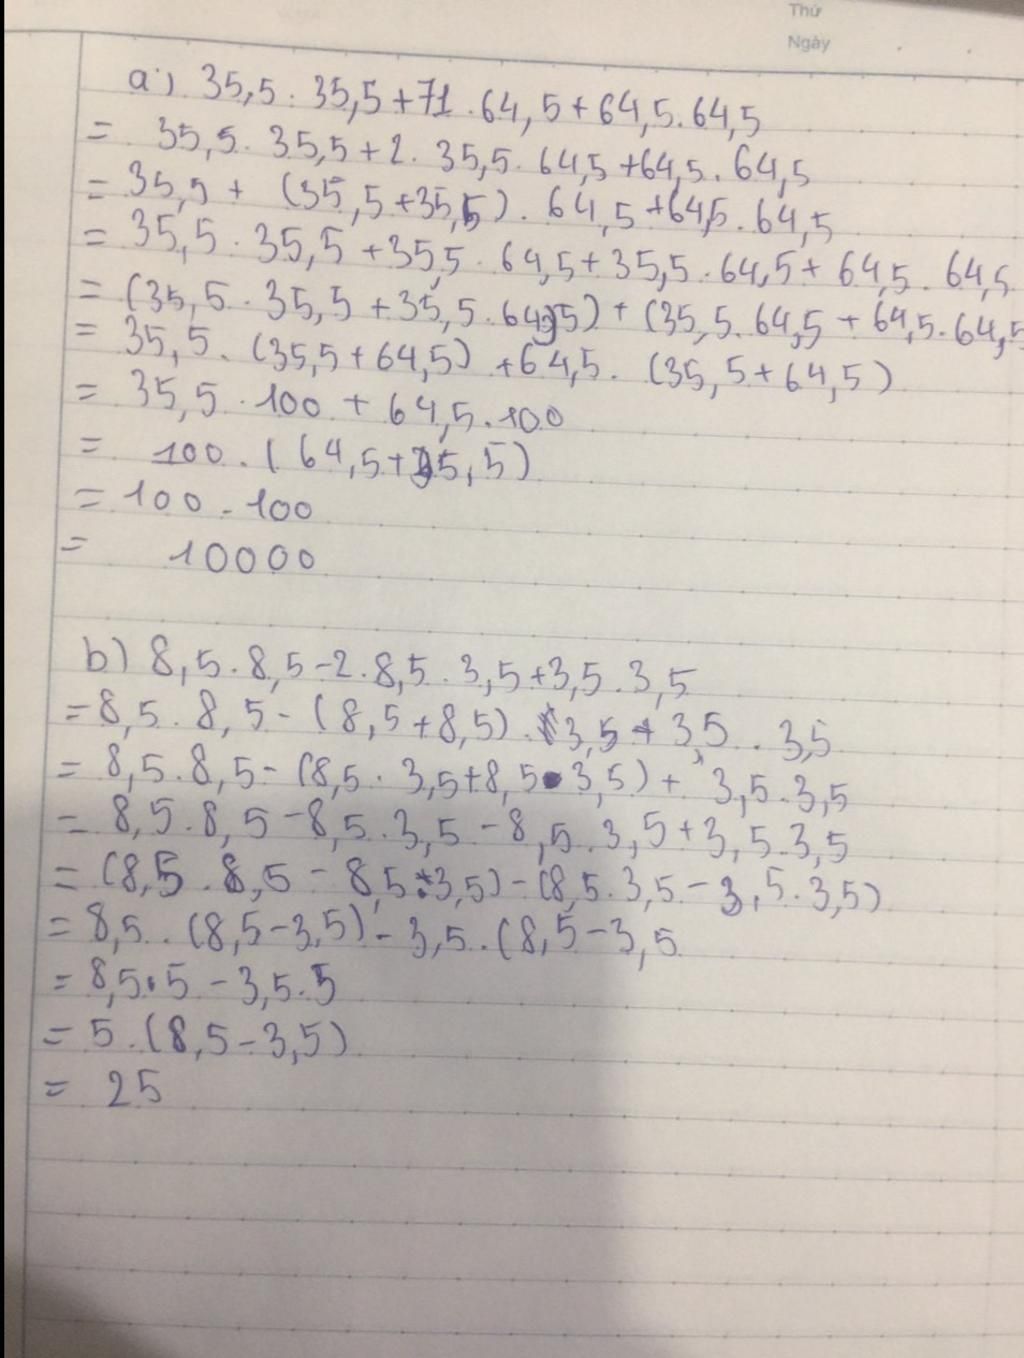 Thứ
Ngày
a) 35,5 . 35,5 + 71 . 64,5 + 64,5 . 64,5
= 35,5 . 35,5 + 2 . 35,5 . 64,5 + 64,5 . 64,5
= 35,5 + (35,5 + 35,5) . 64,5 + 64,5 . 64,5
= 35,5 . 35,5 + 35,5 . 64,5 + 35,5 . 64,5 + 64,5 . 64,5
= (35,5 . 35,5 + 35,5 . 64,5) + (35,5 . 64,5 + 64,5 . 64,5
= 35,5 . (35,5 + 64,5) + 64,5 . (35,5 + 64,5)
= 35,5 . 100 + 64,5 . 100
= 100 . (64,5 + 35,5)
= 100 . 100
= 10000
b) 8,5 . 8,5 - 2 . 8,5 . 3,5 + 3,5 . 3,5
= 8,5 . 8,5 - (8,5 + 8,5) . 3,5 + 3,5 . 3,5
= 8,5 . 8,5 - (8,5 . 3,5 + 8,5 . 3,5) + 3,5 . 3,5
= 8,5 . 8,5 - 8,5 . 3,5 - 8,5 . 3,5 + 3,5 . 3,5
= (8,5 . 8,5 - 8,5 . 3,5) - (8,5 . 3,5 - 3,5 . 3,5)
= 8,5 . (8,5 - 3,5) - 3,5 . (8,5 - 3,5
= 8,5 . 5 - 3,5 . 5
= 5 . (8,5 - 3,5)
= 25